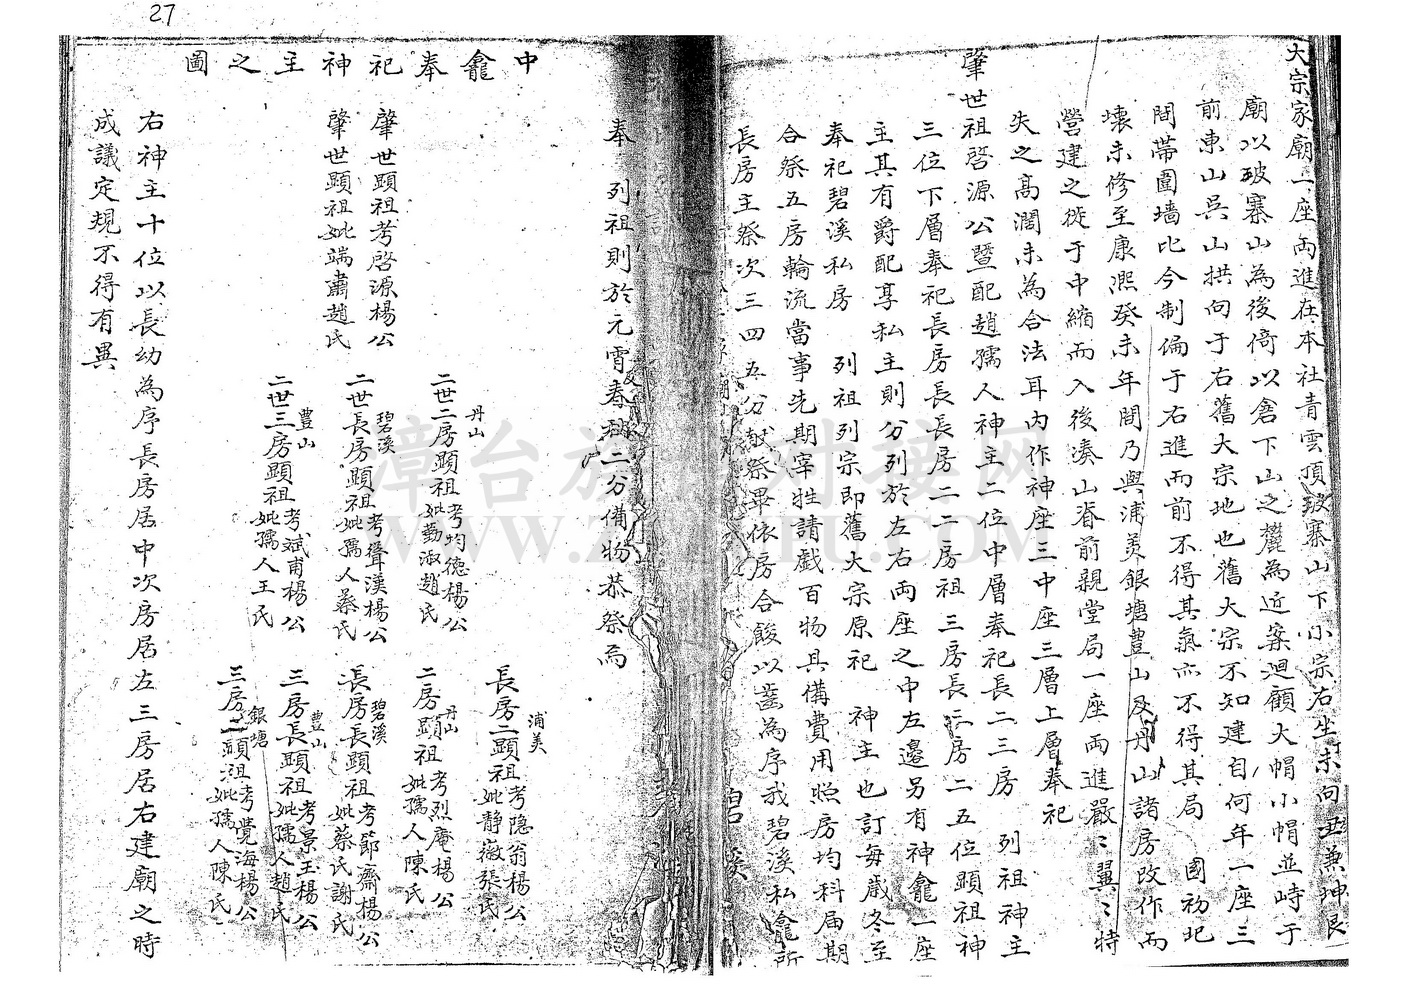 27
大宗家廟一座両進在本社青雲頂玻寨山下小宗右坐未向丑兼坤艮
廟以玻寨山為後倚以倉下山之麓為近案廻顧大帽小帽並峙于
前東山吳山拱向于右舊大宗地也舊大宗不知建自何年一座三
間蒂圍墻比今制偏于右進而前不得其氣亦不得其局 國初圮
壊未修至康熙癸未年間乃與浦美銀塘豊山及丹山諸房改作而
營建之徙于中縮而入後湊山脊前親堂局一座両進嚴〻翼〻特
失之高濶未為合法耳内作神座三中座三層上層奉祀
肇世祖啓源公暨配趙孺人神主二位中層奉祀長二三房 列祖神主
三位下層奉祀長房長長房二二房祖三房長三房二五位顕祖神
主其有爵配享私主則分列於左右両座之中左邊另有神龕一座
奉祀碧溪私房 列祖列宗即舊大宗原祀 神主也訂每歲冬至
合祭五房輪流當事先期宰牲請戯百物具備費用照房均科届期
長房主祭次三四五分献祭畢依房合餕以齒為序我碧溪私龕所
奉 列祖則於元宵春秋二分備物恭祭焉
中龕奉祀神主之圖
肇世顕祖考啓源楊公
肇世顕祖妣端肅趙氏
丹山
二世二房顕祖考均德楊公
妣勤淑趙氏
碧溪
二世長房顕祖考聳漢楊公
妣孺人蔡氏
豊山
二世三房顕祖考斌甫楊公
妣孺人王氏
浦美
長房二顕祖考隐翁楊公
妣静徽張氏
丹山
二房顕祖考烈庵楊公
妣孺人陳氏
碧溪
長房長顕祖考節齋楊公
妣蔡氏謝氏
豊山
三房長顕祖考景玉楊公
妣孺人趙氏
銀塘
三房二顕祖考覺海楊公
妣孺人陳氏
右神主十位以長幼為序長房居中次房居左三房居右建廟之時
成議定規不得有異
漳台族譜对接网